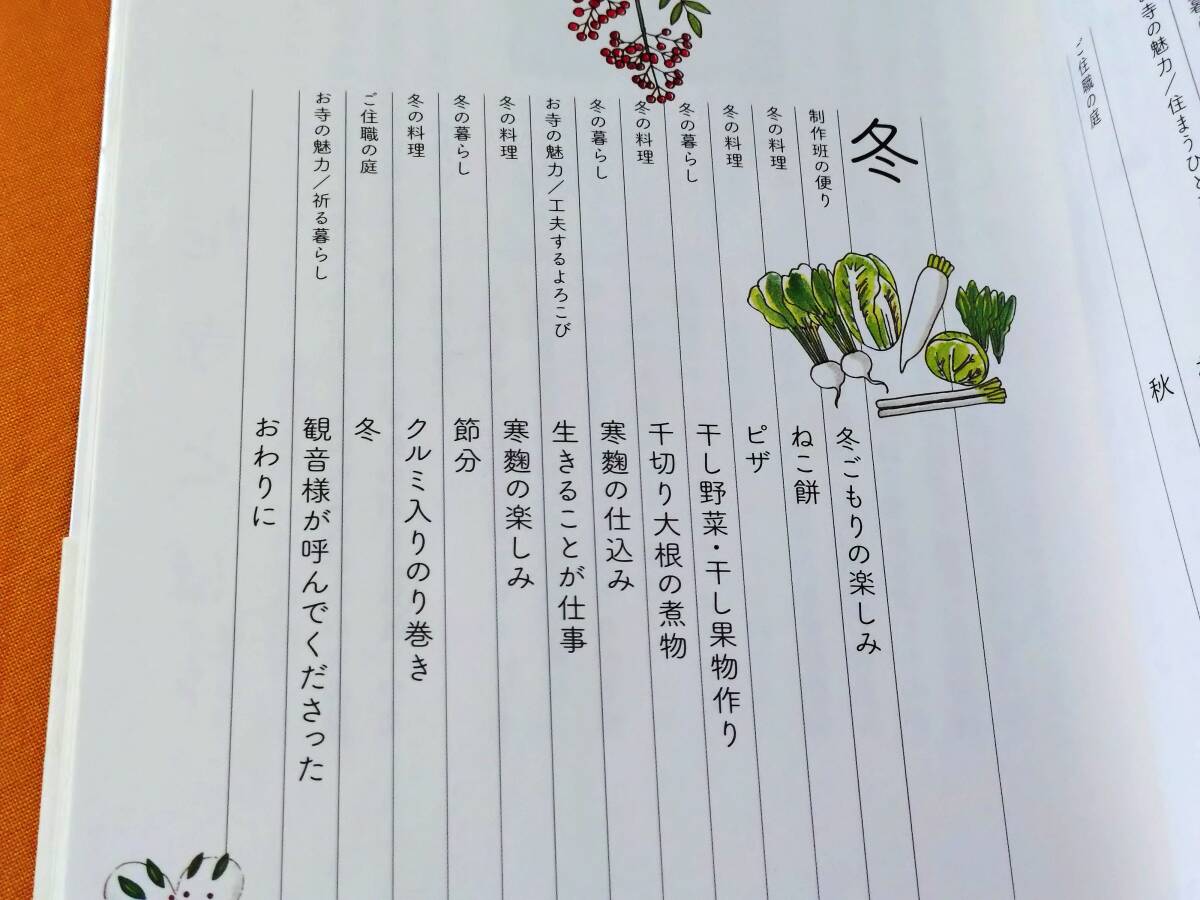 お寺の魅力/住まうひと
ご住職の庭 秋
冬
制作班の便り 冬ごもりの楽しみ
冬の料理 ねこ餅
冬の料理 ピザ
冬の暮らし 干し野菜・干し果物作り
冬の料理 千切り大根の煮物
冬の暮らし 寒麴の仕込み
お寺の魅力/工夫するよろこび 生きることが仕事
冬の料理 寒麴の楽しみ
冬の暮らし 節分
冬の料理 クルミ入りのり巻き
ご住職の庭 冬
お寺の魅力/祈る暮らし 観音様が呼んでくださった
おわりに